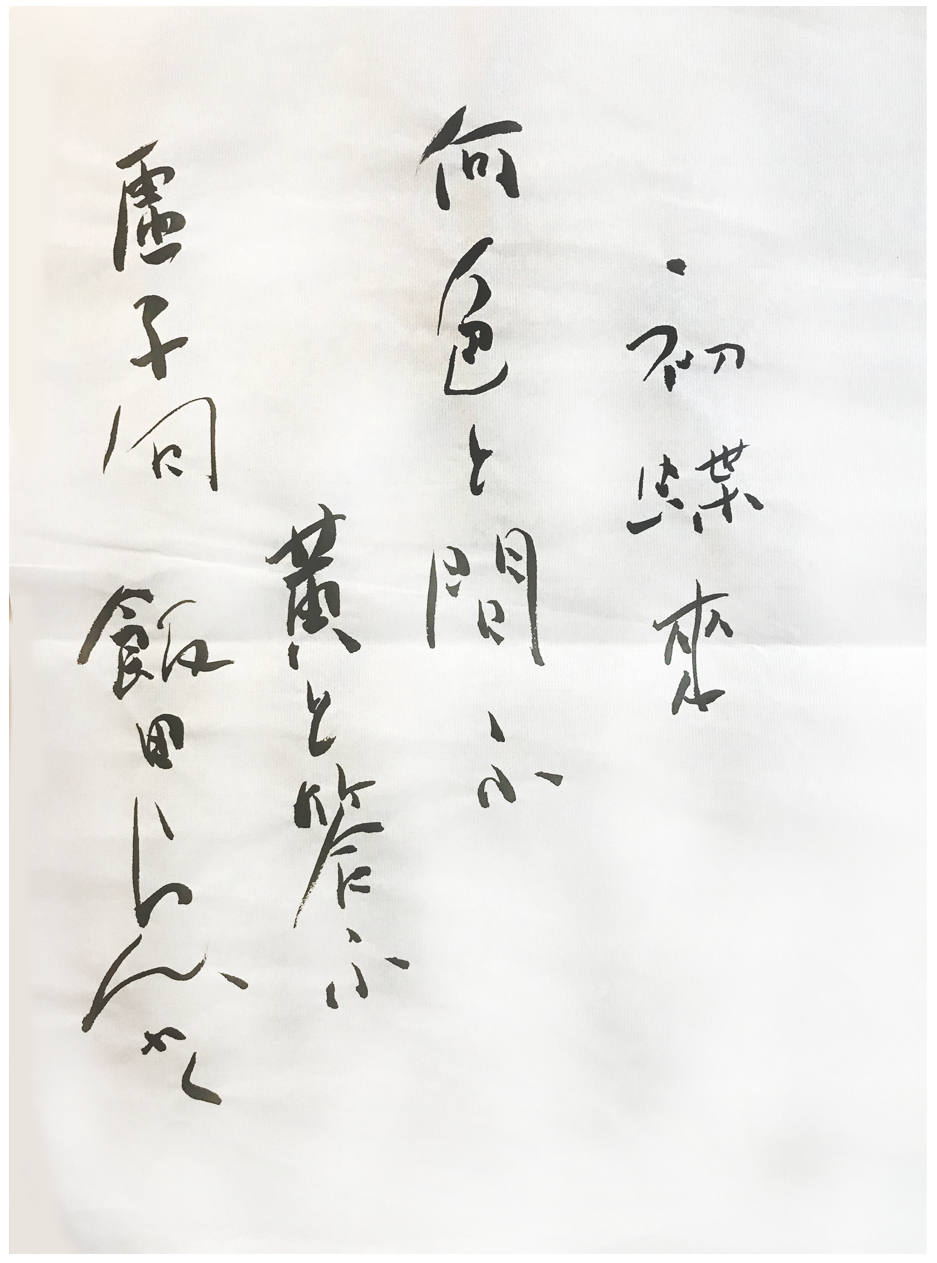 初蝶來
何色と問ふ
黄と答ふ
虚子句 飯田らんかく